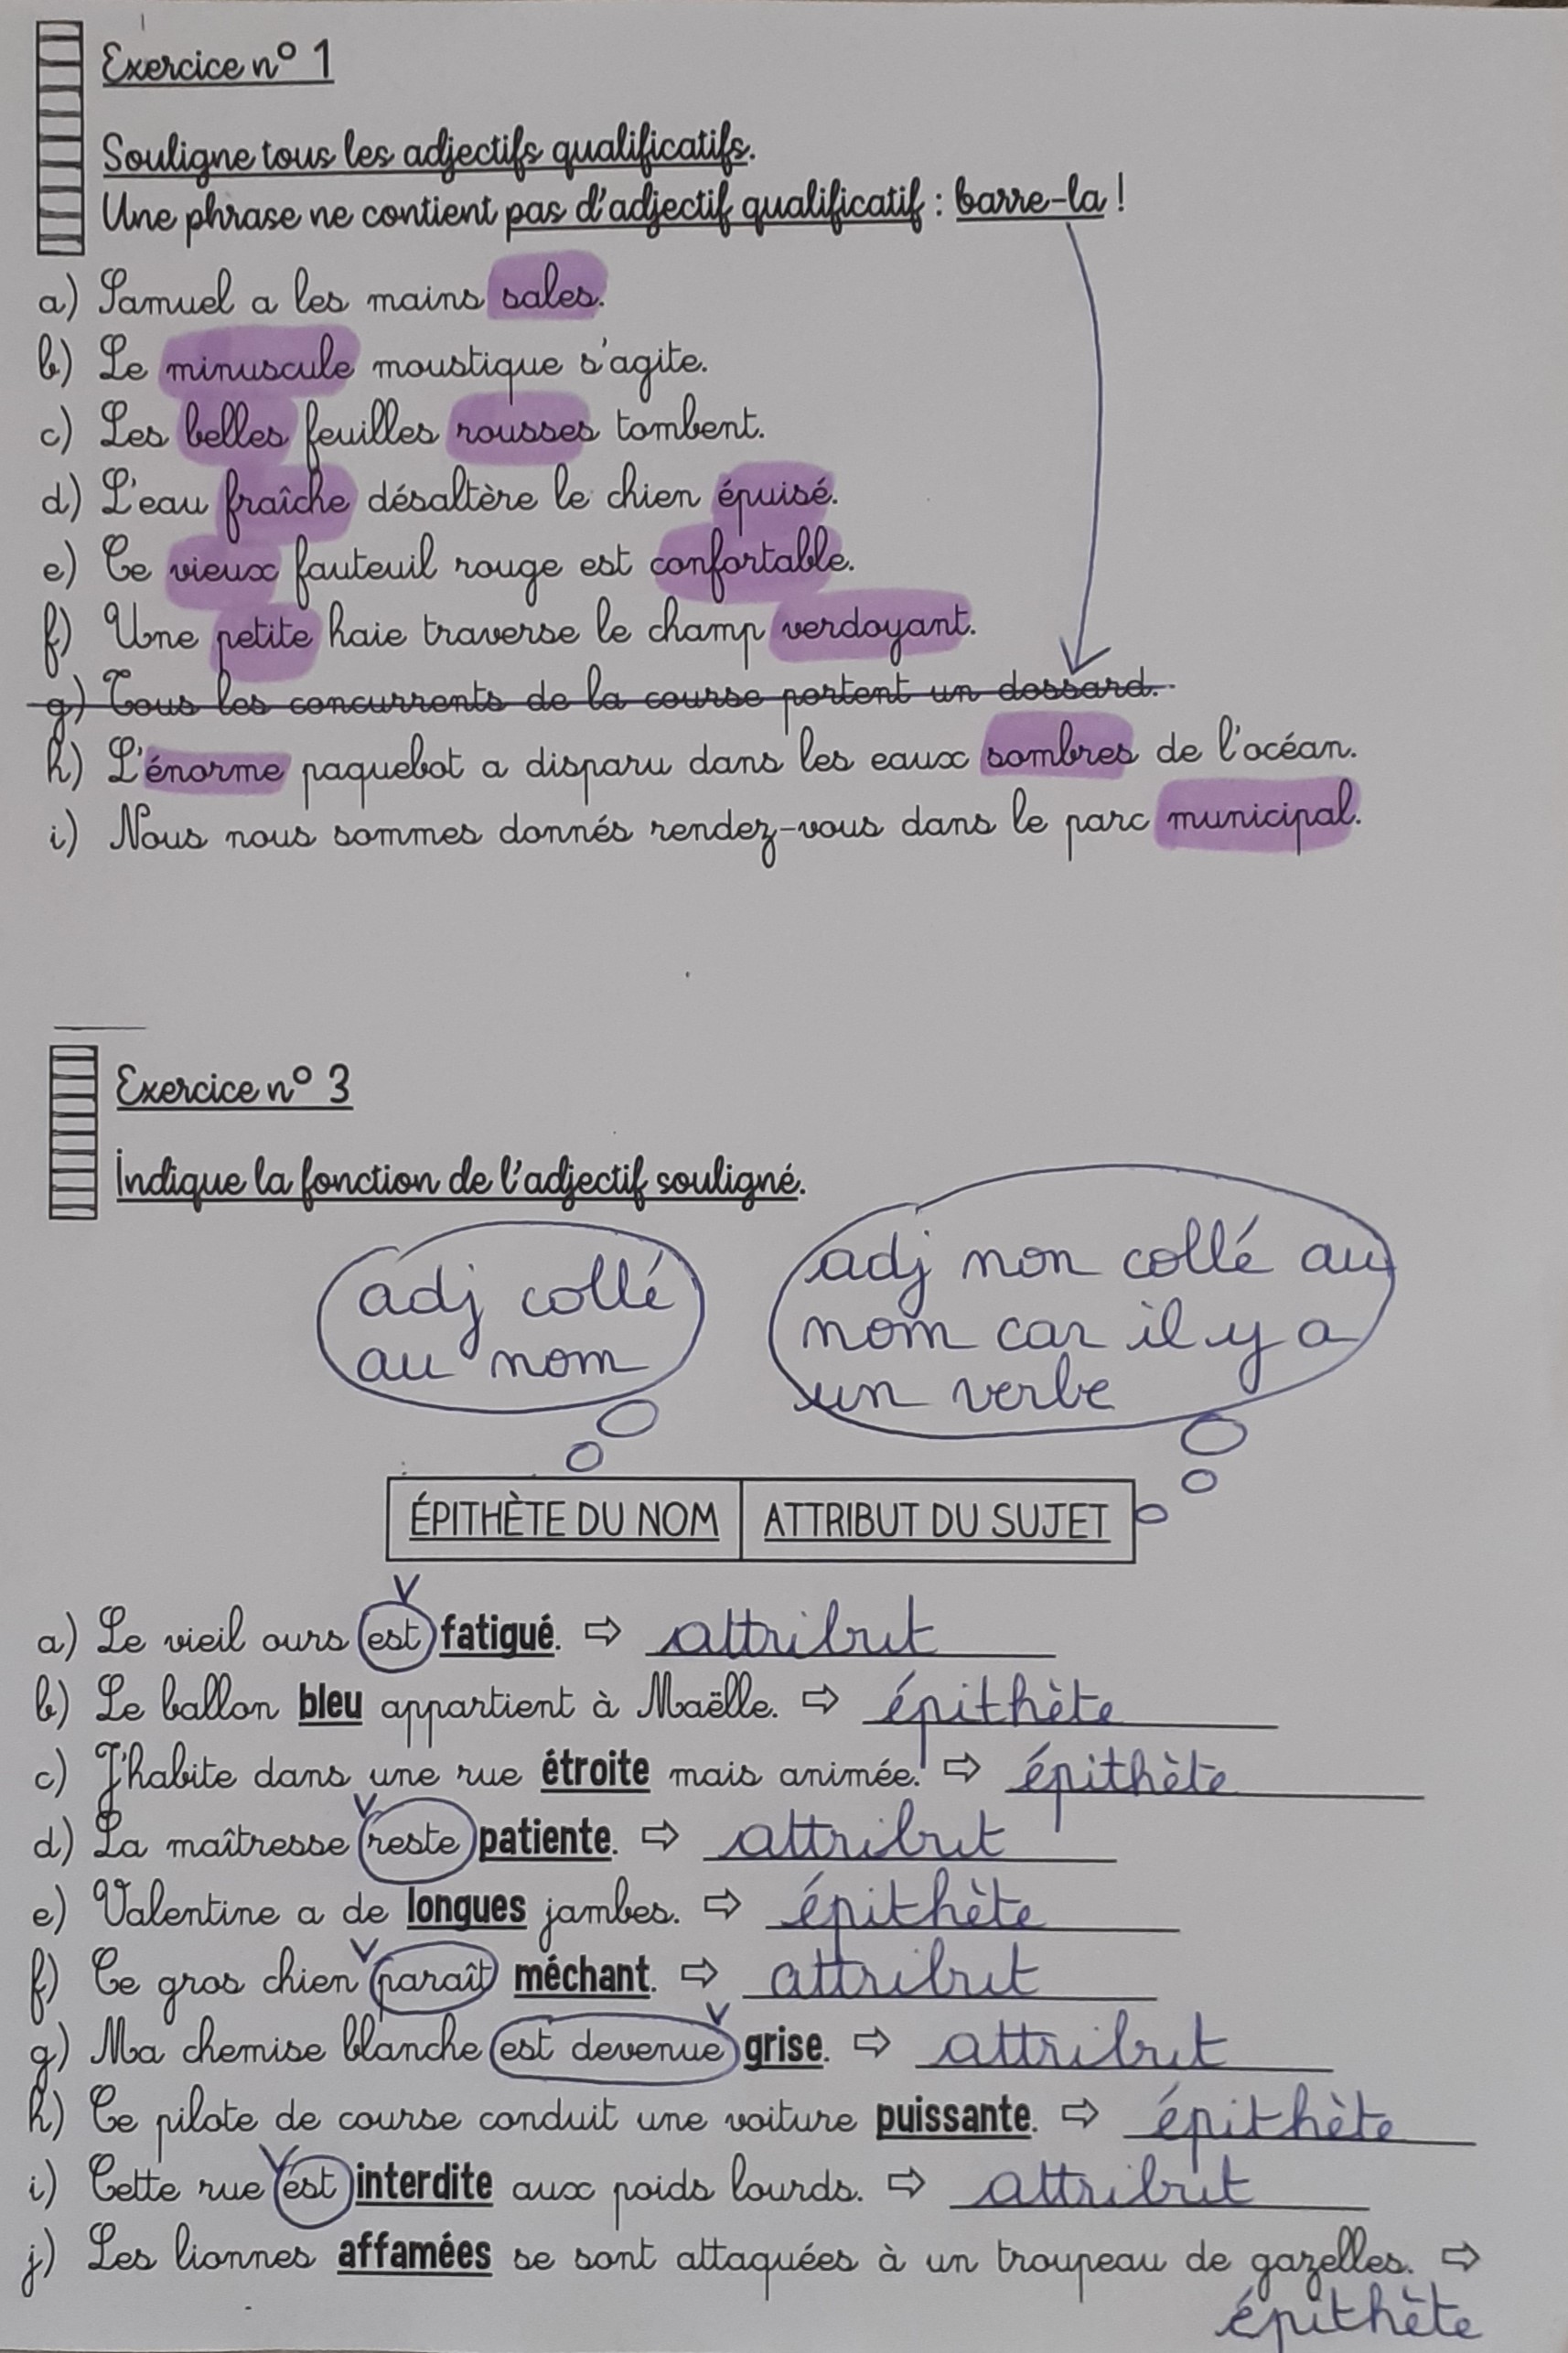 Exercice n° 1
Souligne tous les adjectifs qualificatifs.
Une phrase ne contient pas d'adjectif qualificatif : barre-la !
a) Samuel a les mains sales.
b) Le minuscule moustique s'agite.
c) Les belles feuilles rousses tombent.
d) L'eau fraîche désaltère le chien épuisé.
e) Ce vieux fauteuil rouge est confortable.
f) Une petite haie traverse le champ verdoyant.
g) Tous les concurrents de la course portent un dossard.
h) L'énorme paquebot a disparu dans les eaux sombres de l'océan.
i) Nous nous sommes donnés rendez-vous dans le parc municipal.
Exercice n° 3
Indique la fonction de l'adjectif souligné.
adj collé
au nom
adj non collé au
nom car il y a
un verbe
ÉPITHÈTE DU NOM ATTRIBUT DU SUJET
V
a) Le vieil ours est fatigué. ⇨ attribut
b) Le ballon bleu appartient à Maëlle. ⇨ épithète
c) J'habite dans une rue étroite mais animée. ⇨ épithète
V
d) La maîtresse reste patiente. ⇨ attribut
e) Valentine a de longues jambes. ⇨ épithète
V
f) Ce gros chien paraît méchant. ⇨ attribut
V
g) Ma chemise blanche est devenue grise. ⇨ attribut
h) Ce pilote de course conduit une voiture puissante. ⇨ épithète
V
i) Cette rue est interdite aux poids lourds. ⇨ attribut
j) Les lionnes affamées se sont attaquées à un troupeau de gazelles. ⇨
épithète